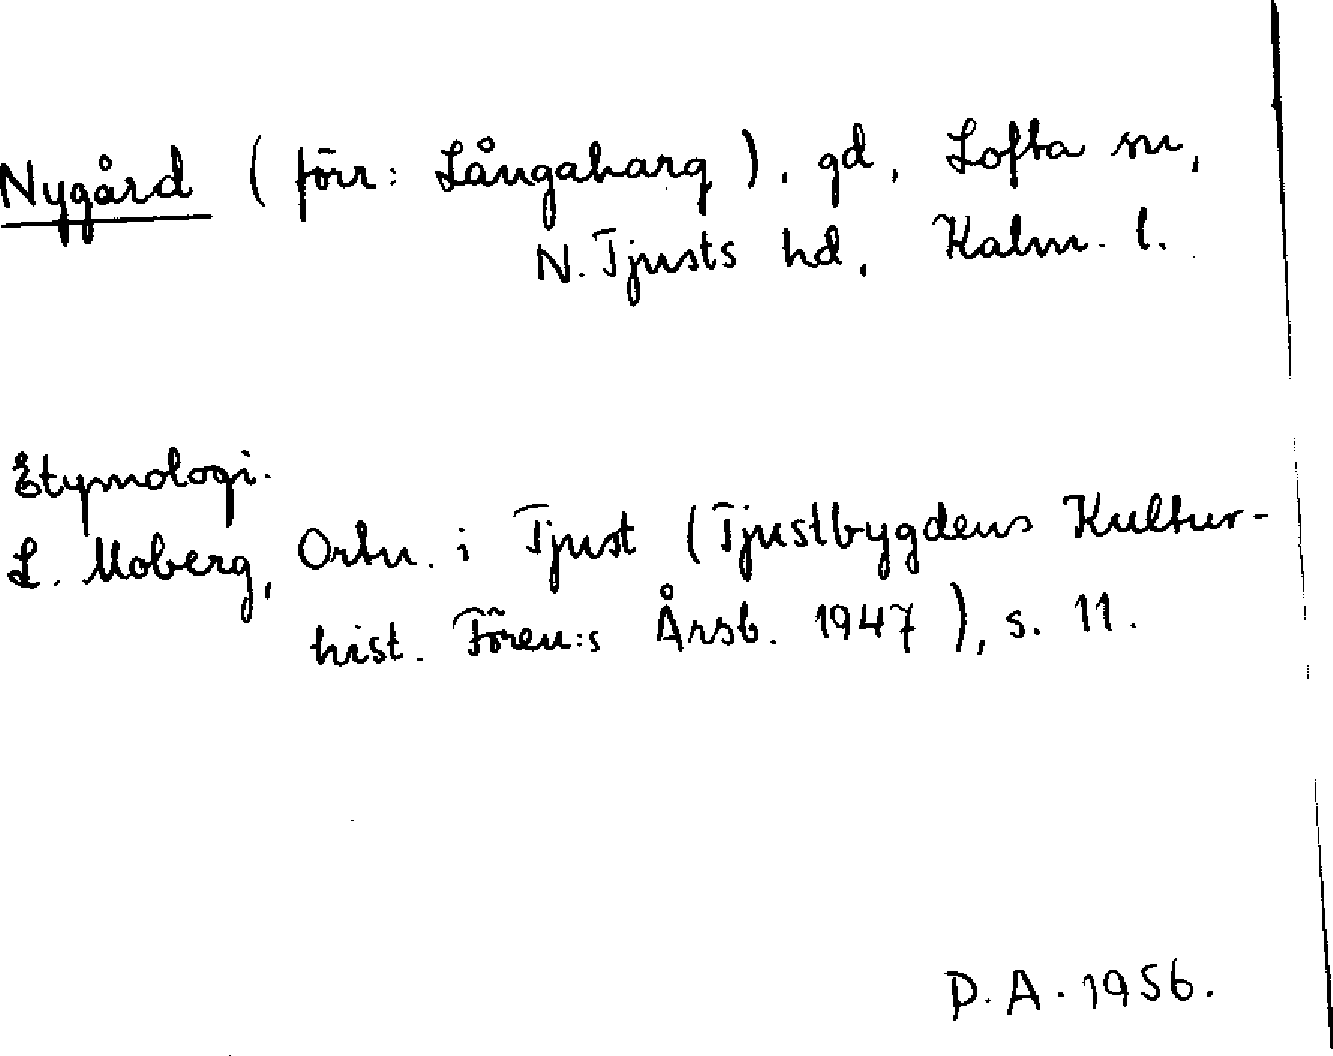 Nygård (förr: Långaharg), gd, Lofta sn,
N. Tjusts hd, Kalm. l.
Etymologi.
L. Moberg, Ortn. i Tjust (Tjustbygdens Kultur-
hist. Fören:s Årsb. 1947), s. 11.
D. A. 1956.